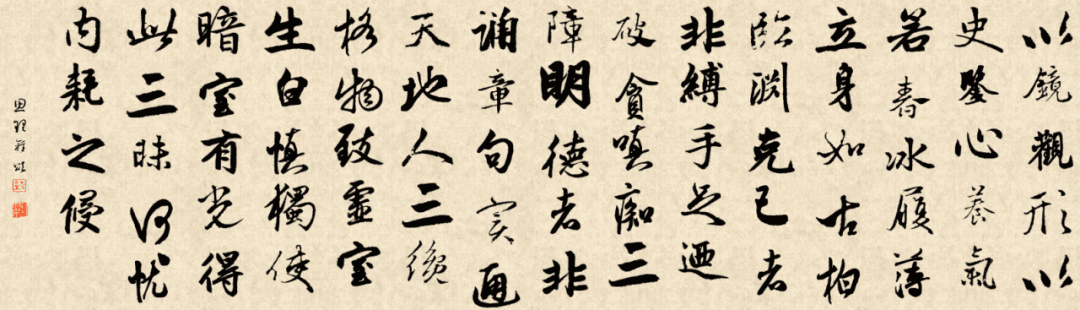 以鏡觀形以
史鑒心養氣
若春冰履薄
立身如古柏
臨淵克己者
非縛手足迺
破貪嗔痴三
障明德者非
誦章句實通
天地人三纔
格物致靈室
生白慎獨使
暗室有光得
此三昧何忧
内耗之侵